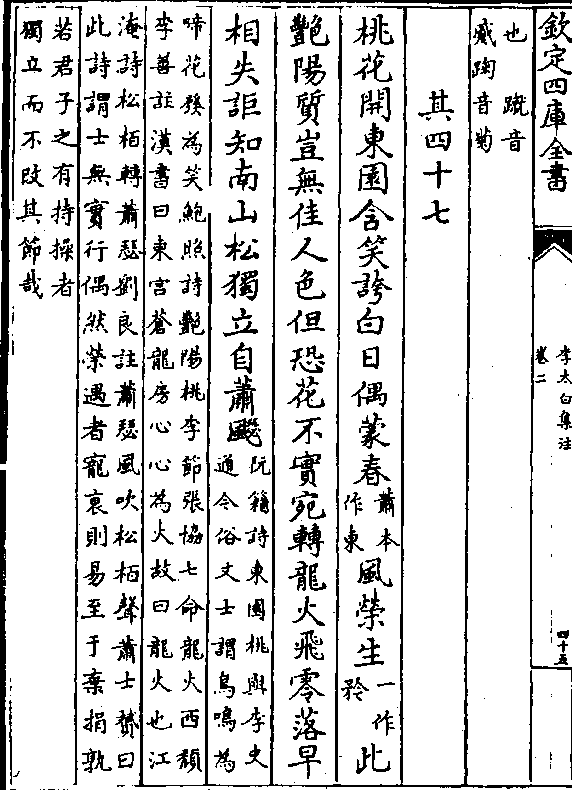 欽定四庫全書
李太白集注
卷二
四十五
也　蹴音
蹙踘音菊
其四十七
桃花開東園含笑誇白日偶蒙春蕭本作東風榮生一作矜此
豔陽質豈無佳人色但恐花不實宛轉龍火飛零落早
相失詎知南山松獨立自蕭飋阮籍詩東園桃與李史道今俗文士謂鳥鳴為
啼花發為笑鮑照詩豔陽桃李節張協七命龍火西頹
李善註漢書曰東宮蒼龍房心心為火故曰龍火也江
淹詩松栢轉蕭瑟劉良註蕭瑟風吹松栢聲蕭士贇曰
此詩謂士無實行偶然榮遇者寵衰則易至于棄捐孰
若君子之有持操者
獨立而不改其節哉